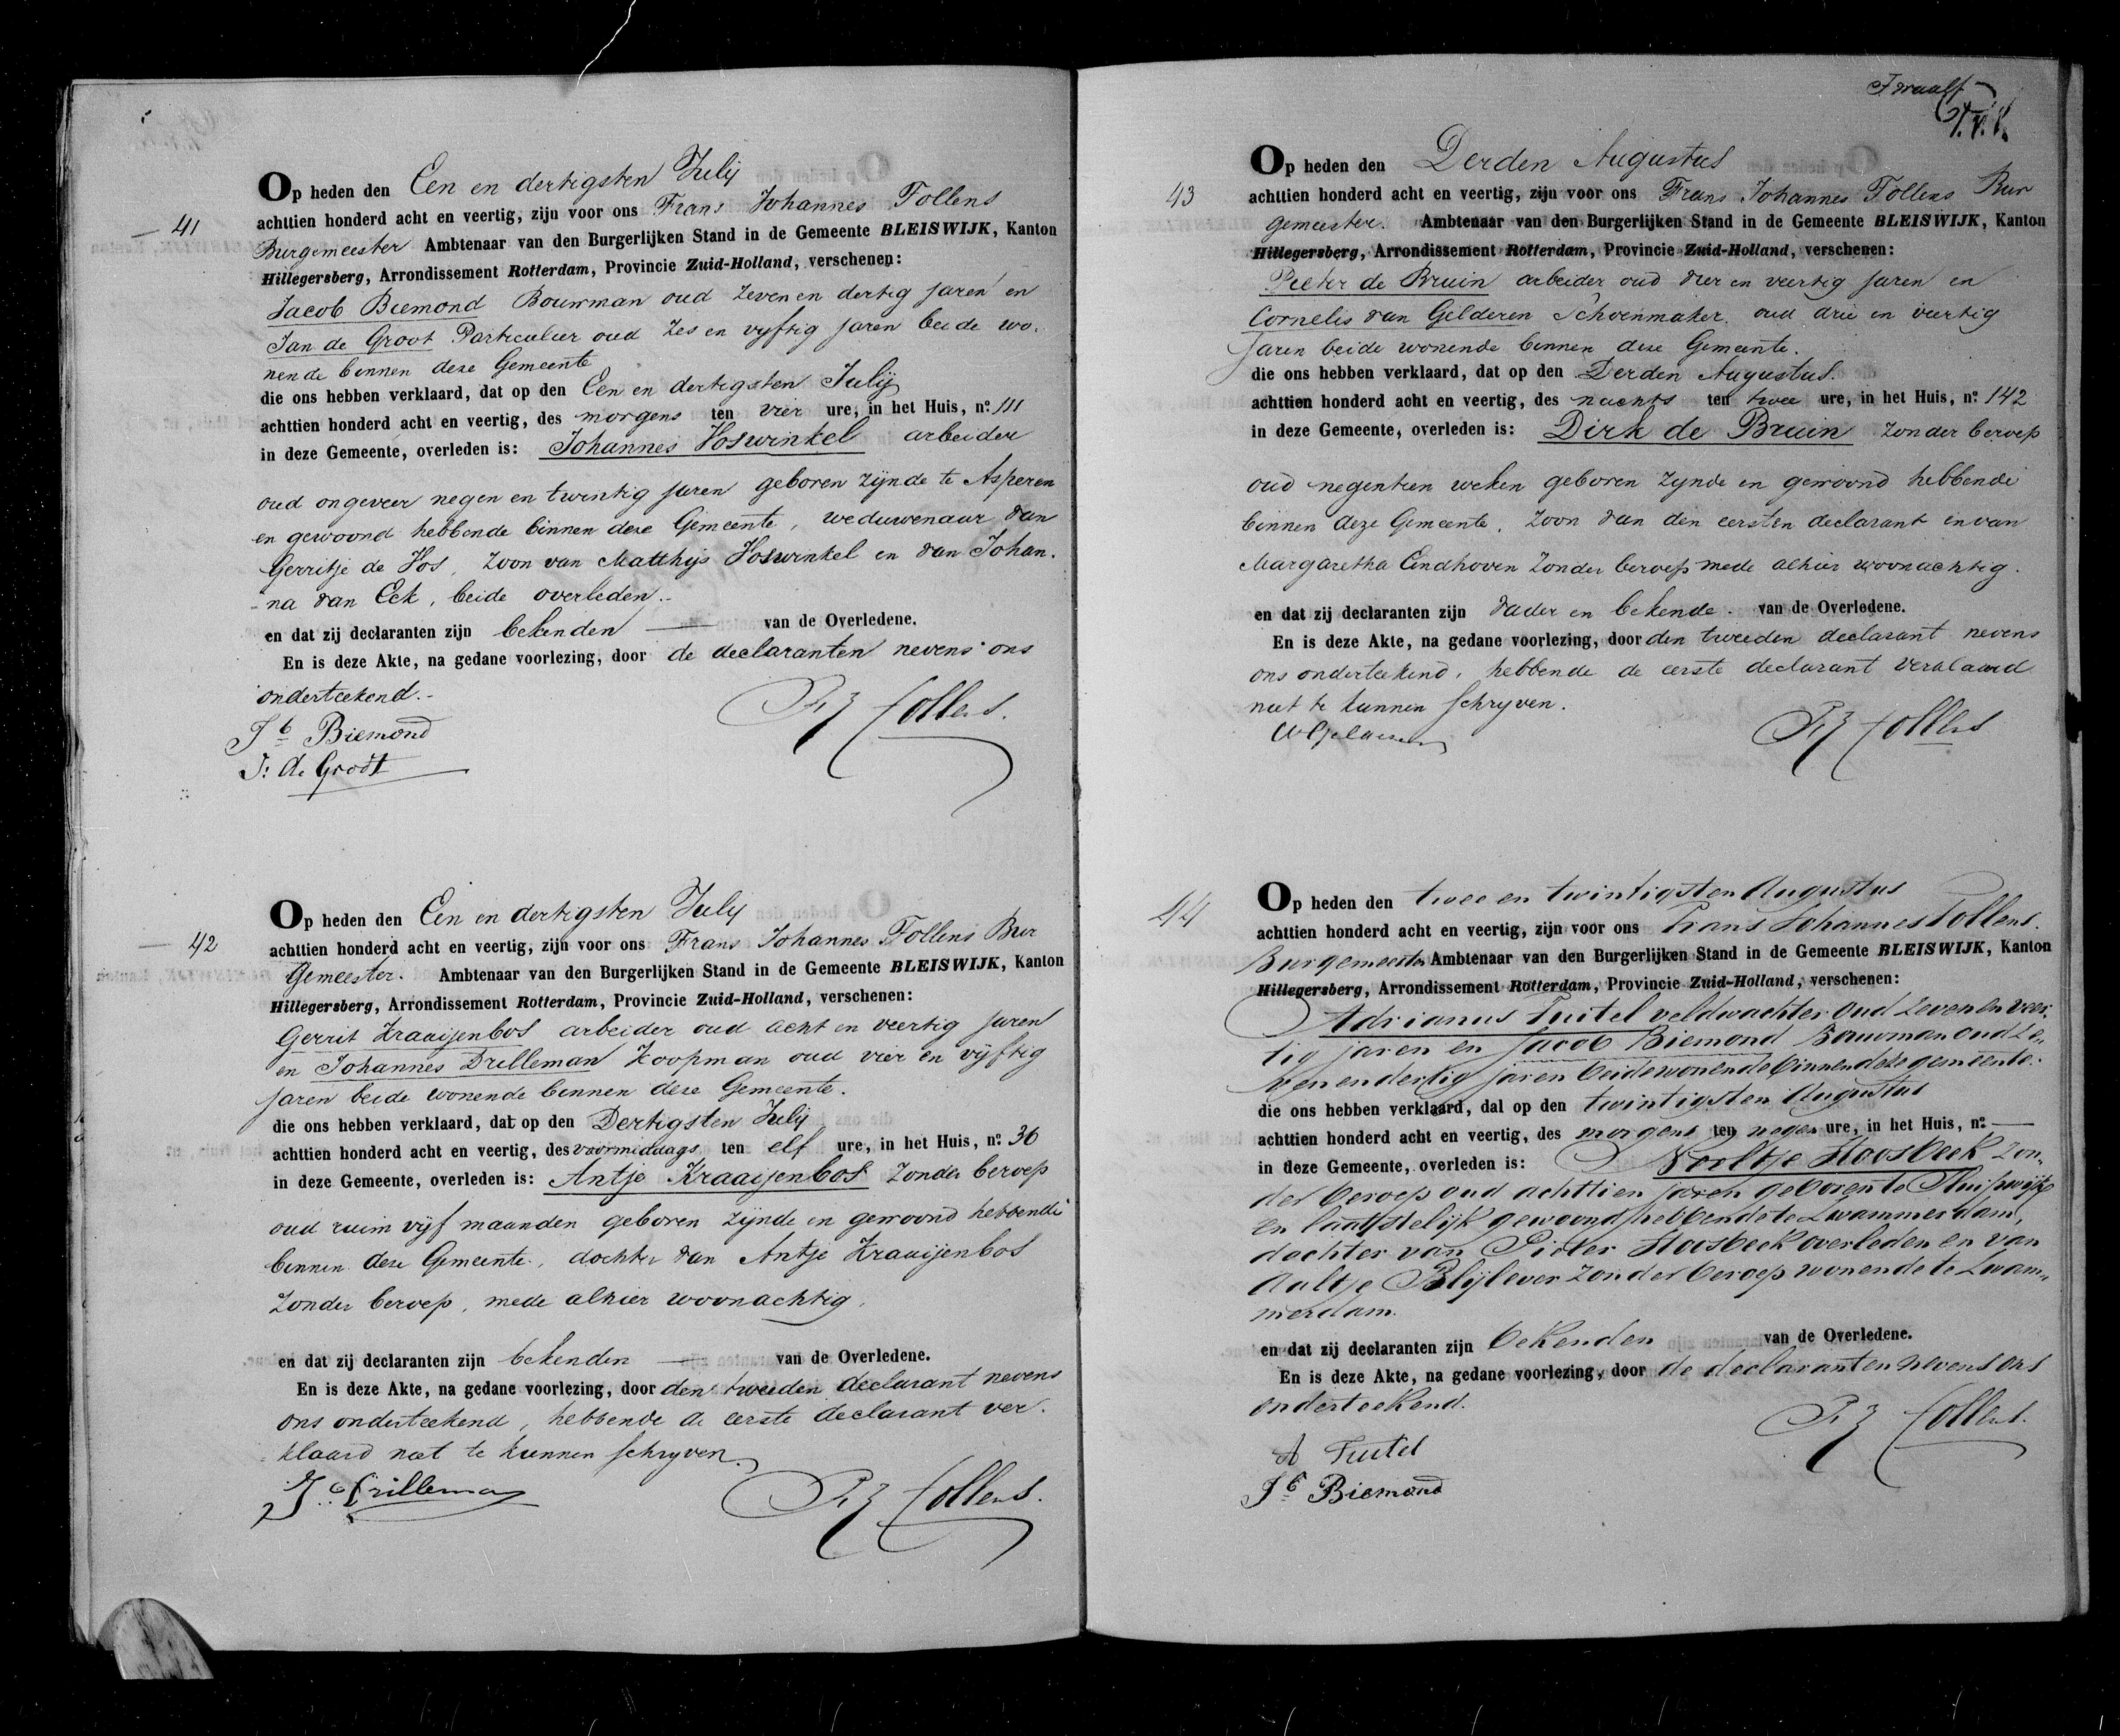 41
Op heden den Een en dertigsten July
achttien honderd acht en veertig, zijn voor ons Frans Johannes Tollens
Burgemeester Ambtenaar van den Burgerlijken Stand in de Gemeente BLEISWIJK, Kanton
Hillegersberg, Arrondissement Rotterdam, Provincie Zuid-Holland, verschenen:
Jacob Biemond Bouwman oud zeven en dertig jaren en
Jan de Groot Particulier oud zes en vyftig jaren beide wo-
nende binnen deze Gemeente
die ons hebben verklaard, dat op den Een en dertigsten July
achttien honderd acht en veertig, des morgens ten vier ure, in het Huis, no. 111
in deze Gemeente, overleden is: Johannes Voswinkel arbeider
oud ongeveer negen en twintig jaren geboren zynde te Asperen
en gewoond hebbende binnen deze Gemeente, weduwenaar van
Gerritje de Vos, zoon van Matthijs Voswinkel en van Johan-
na van Eck, beide overleden.
en dat zij declaranten zijn bekenden van de Overledene.
En is deze Akte, na gedane voorlezing, door de declaranten nevens ons
onderteekend.
Jb Biemond
J: de Groot
FJ Tollens.
42
Op heden den Een en dertigsten July
achttien honderd acht en veertig, zijn voor ons Frans Johannes Tollens Bur
Gemeester. Ambtenaar van den Burgerlijken Stand in de Gemeente BLEISWIJK, Kanton
Hillegersberg, Arrondissement Rotterdam, Provincie Zuid-Holland, verschenen:
Gerrit Kraaijenbos arbeider oud acht en veertig jaren
en Johannes Drilleman Koopman oud vier en vijftig
jaren beide wonende binnen deze Gemeente.
die ons hebben verklaard, dat op den Dertigsten July
achttien honderd acht en veertig, des voormiddags ten elf ure, in het Huis, no. 36
in deze Gemeente, overleden is: Antje Kraaijenbos zonder beroep
oud ruim vijf maanden geboren zynde en gewoond hebbende
binnen deze Gemeente, dochter van Antje Kraaijenbos
zonder beroep, mede alhier woonachtig.
en dat zij declaranten zijn bekenden van de Overledene.
En is deze Akte, na gedane voorlezing, door den tweeden declarant nevens
ons onderteekend, hebbende de eerste declarant ver-
klaard niet te kunnen schryven.
Js Drilleman
FJ Tollens.
Twaalf
43
Op heden den Derden Augustus
achttien honderd acht en veertig, zijn voor ons Frans Johannes Tollens Bur
gemeester. Ambtenaar van den Burgerlijken Stand in de Gemeente BLEISWIJK, Kanton
Hillegersberg, Arrondissement Rotterdam, Provincie Zuid-Holland, verschenen:
Pieter de Bruin arbeider oud drie en veertig jaren en
Cornelis van Gelderen Schoenmaker oud drie en veertig
Jaren beide wonende binnen deze Gemeente.
die ons hebben verklaard, dat op den Derden Augustus.
achttien honderd acht en veertig, des nachts ten twee ure, in het Huis, no. 142
in deze Gemeente, overleden is: Dirk de Bruin zonder beroep
oud negentien weken geboren zynde en gewoond hebbende
binnen deze Gemeente, zoon van den eersten declarant en van
Margaretha Eindhoven zonder beroep mede alhier woonachtig.
en dat zij declaranten zijn vader en bekende. van de Overledene.
En is deze Akte, na gedane voorlezing, door den tweeden declarant nevens
ons onderteekend, hebbende de eerste declarant verklaard
niet te kunnen schryven.
FJ Tollens
44
Op heden den twee en twintigsten Augustus
achttien honderd acht en veertig, zijn voor ons Frans Johannes Tollens.
Burgemeester Ambtenaar van den Burgerlijken Stand in de Gemeente BLEISWIJK, Kanton
Hillegersberg, Arrondissement Rotterdam, Provincie Zuid-Holland, verschenen:
Adrianus Tuitel veldwachter oud zeven en veer-
tig jaren en Jacob Biemond Bouwman oud ze-
ven en dertig jaren beide wonende binnen deze gemeente.
die ons hebben verklaard, dat op den twintigsten Augustus
achttien honderd acht en veertig, des morgens ten negen ure, in het Huis, no. —
in deze Gemeente, overleden is: Neeltje Hoosbeek zon-
der beroep oud achttien jaren geboren te Sluipwijk
en laatstelijk gewoond hebbende te Zwammerdam,
dochter van Pieter Hoosbeek overleden en van
Aaltje Blijlever zonder beroep wonende te Zwam-
merdam.
en dat zij declaranten zijn bekenden van de Overledene.
En is deze Akte, na gedane voorlezing, door de declaranten nevens ons
onderteekend.
A Tuitel
Jb Biemond
FJ Tollens.